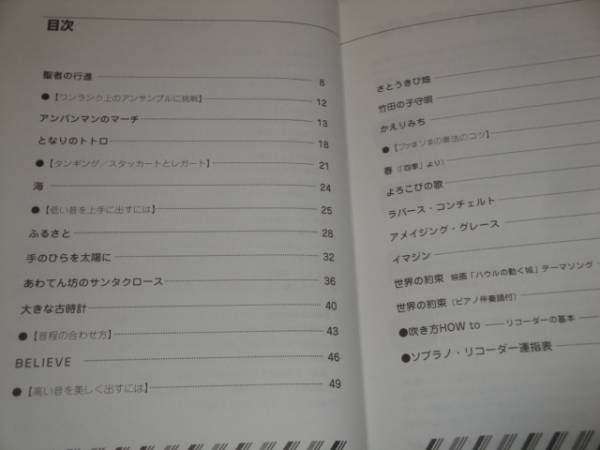 目次
聖者の行進 8
●【ワンランク上のアンサンブルに挑戦】 12
アンパンマンのマーチ 13
となりのトトロ 18
●【タンギング／スタッカートとレガート】 21
海 24
●【低い音を上手に出すには】 25
ふるさと 28
手のひらを太陽に 32
あわてん坊のサンタクロース 36
大きな古時計 40
●【音程の合わせ方】 43
BELIEVE 46
●【高い音を美しく出すには】 49
さとうきび畑
竹田の子守唄
かえりみち
●【ファ♯ソ♯の奏法のコツ】
春（「四季」より）
よろこびの歌
ラバース・コンチェルト
アメイジング・グレース
イマジン
世界の約束 映画「ハウルの動く城」テーマソング
世界の約束（ピアノ伴奏譜付）
●吹き方HOW to ――リコーダーの基本
●ソプラノ・リコーダー運指表